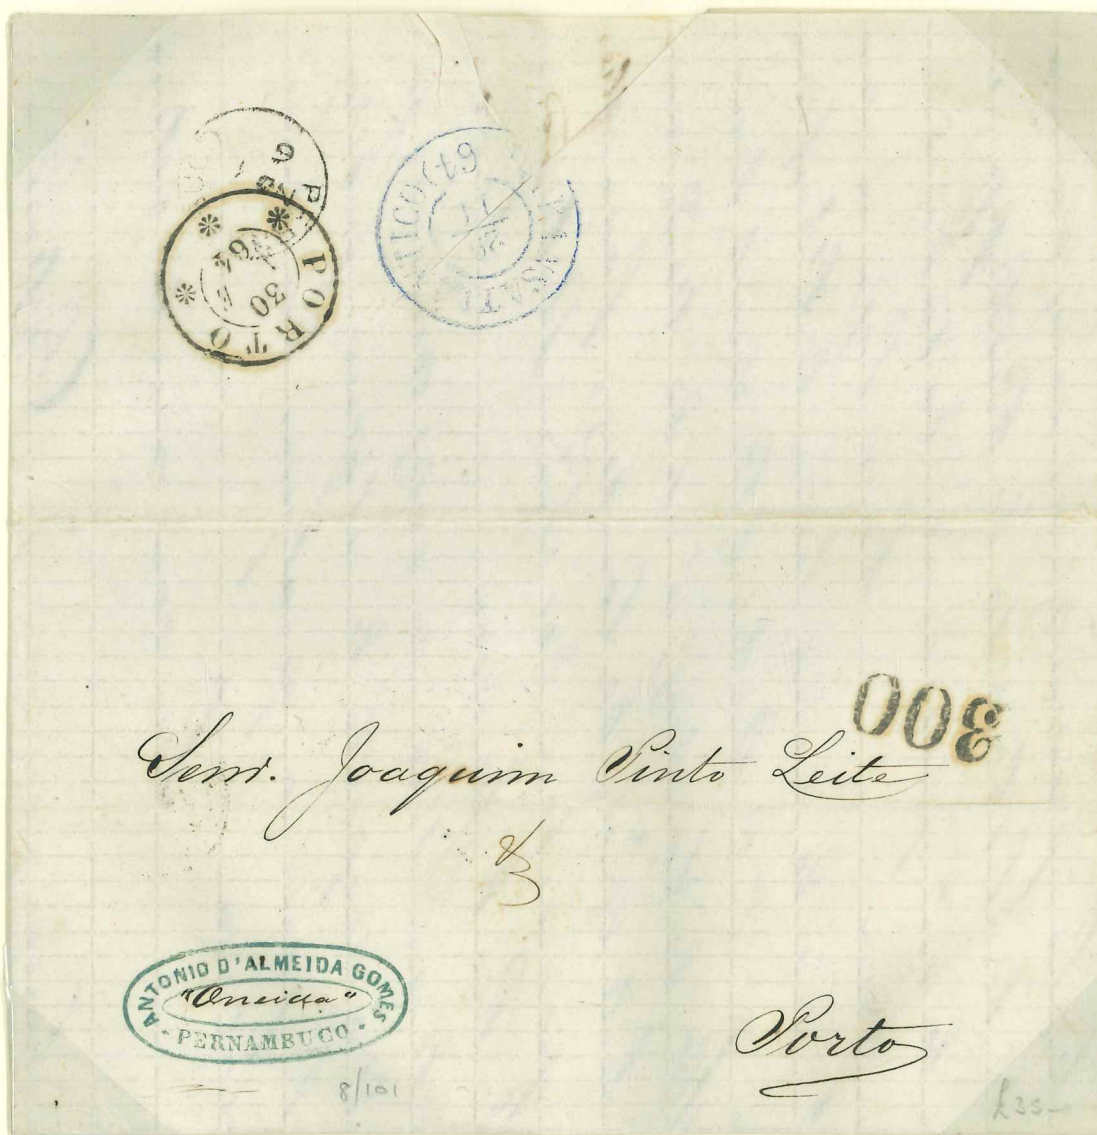 PORTO
30
64
TRANSATL
64
28
300
Senr. Joaquim Pinto Leite
ANTONIO D'ALMEIDA GOMES
"Oneida"
- PERNAMBUCO -
Porto
8/101
£35-